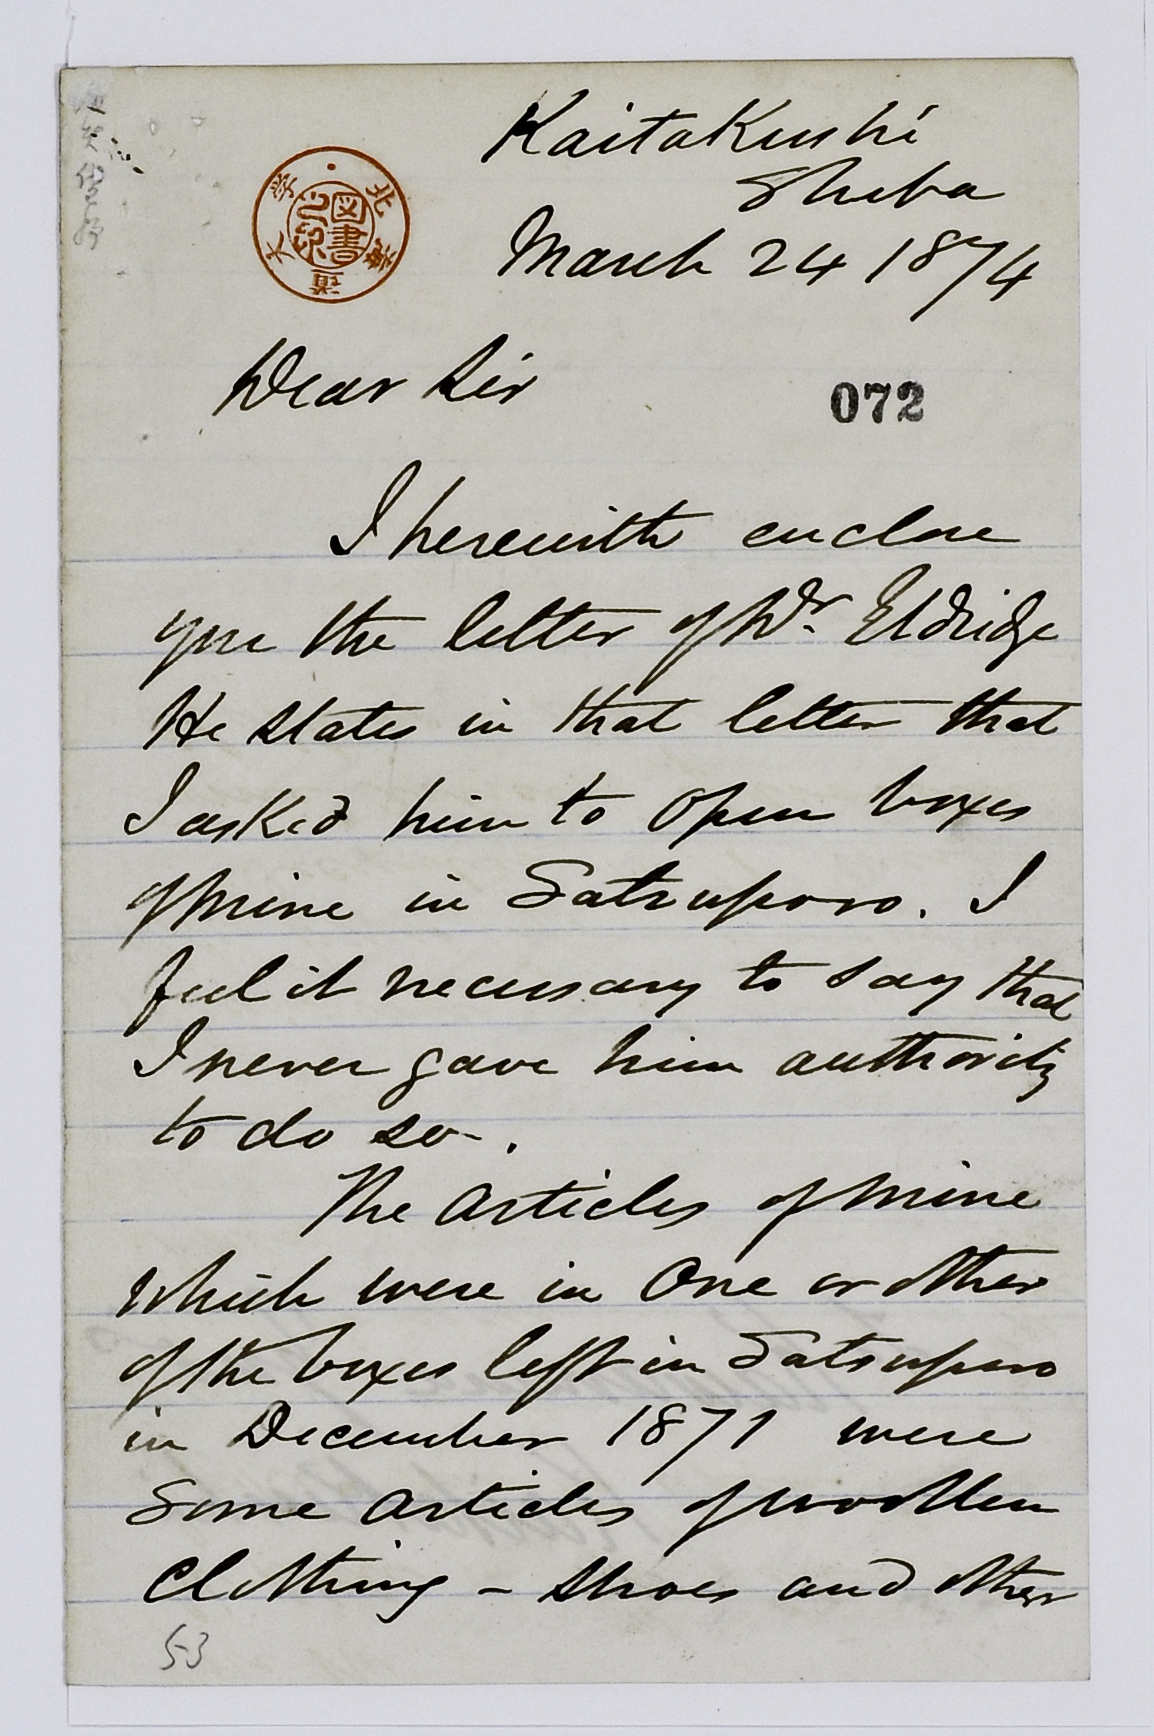 KaitaKushi
Shiba
March 24 1874
北海道大学
図書之印
Dear Sir
072
I herewith enclose
you the letter of Dr. Eldridge
He states in that letter that
I asKed him to open boxes
of mine in Satsuporo. I
feel it necessary to say that
I never gave him authority
to do so.
The articles of mine
which were in one or other
of the boxes left in Satsuporo
in December 1871 were
some articles of woollen
clothing - shoes and other
53